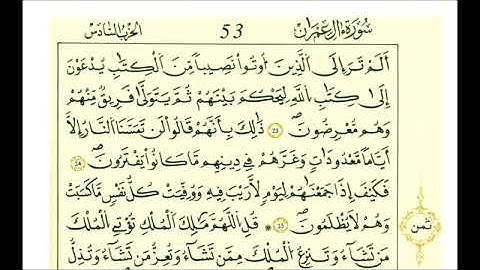 سُورَةُ ءَالِ عِمْرَانَ 53 الحِزْبُ السَّادِسُ
أَلَمْ تَرَ إِلَى اَلذِينَ أُوتُواْ نَصِيباً مِّنَ اَلْكِتَٰبِ يُدْعَوْنَ
إِلَىٰ كِتَٰبِ اِللَّهِ لِيَحْكُمَ بَيْنَهُمْ ثُمَّ يَتَوَلَّىٰ فَرِيقٌ مِّنْهُمْ
وَهُم مُّعْرِضُونَۖ 23 ذَٰلِكَ بِأَنَّهُمْ قَالُواْ لَن تَمَسَّنَا اَلنَّارُ إِلَّا
أَيَّاماً مَّعْدُودَٰتٍ وَغَرَّهُمْ فِي دِينِهِم مَّا كَانُواْ يَفْتَرُونَۖ 24
فَكَيْفَ إِذَا جَمَعْنَٰهُمْ لِيَوْمٍ لَّا رَيْبَ فِيهِ وَوُفِّيَتْ كُلُّ نَفْسٍ مَّا كَسَبَتْ
وَهُمْ لَا يُظْلَمُونَۖ 25 قُلِ اِللَّهُمَّ مَٰلِكَ اَلْمُلْكِ تُؤْتِي اِلْمُلْكَ
ثمن
مَن تَشَآءُ وَتَنزِعُ اُلْمُلْكَ مِمَّن تَشَآءُ وَتُعِزُّ مَن تَشَآءُ وَتُذِلُّ